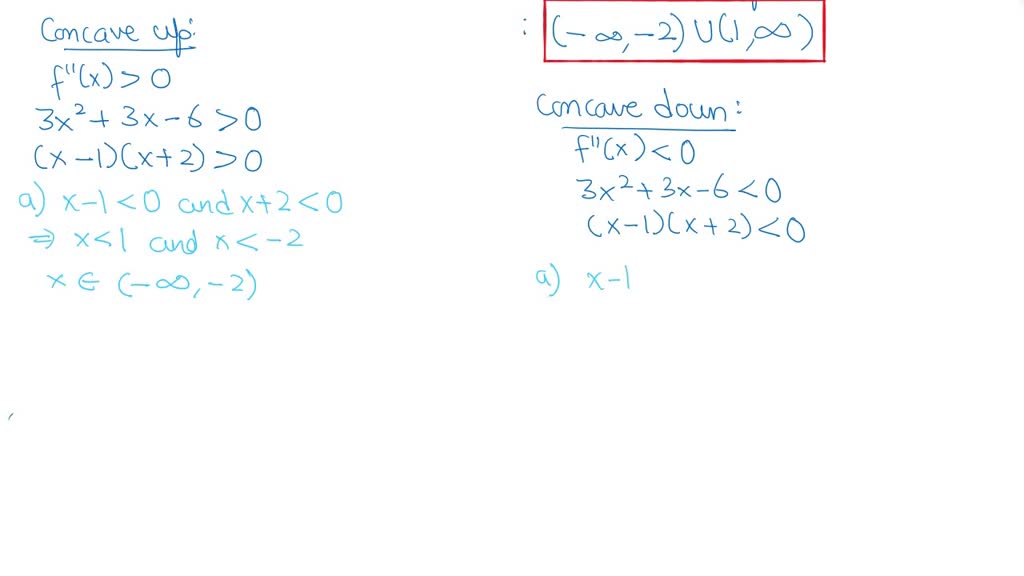 Concave up:
f''(x) > 0
3x² + 3x - 6 > 0
(x - 1)(x + 2) > 0
a) x - 1 < 0 and x + 2 < 0
⇒ x < 1 and x < -2
x ∈ (-∞, -2)
: (-∞, -2) ∪ (1, ∞)
Concave down:
f''(x) < 0
3x² + 3x - 6 < 0
(x - 1)(x + 2) < 0
a) x - 1